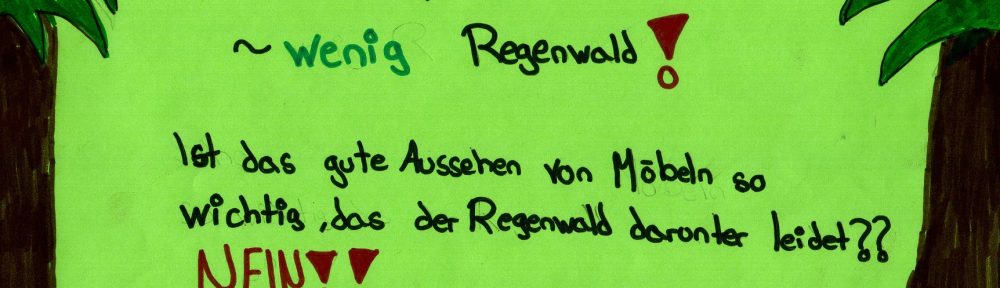 ~ wenig Regenwald!
Ist das gute Aussehen von Möbeln so
wichtig, das der Regenwald daronter leidet??
NEIN!!